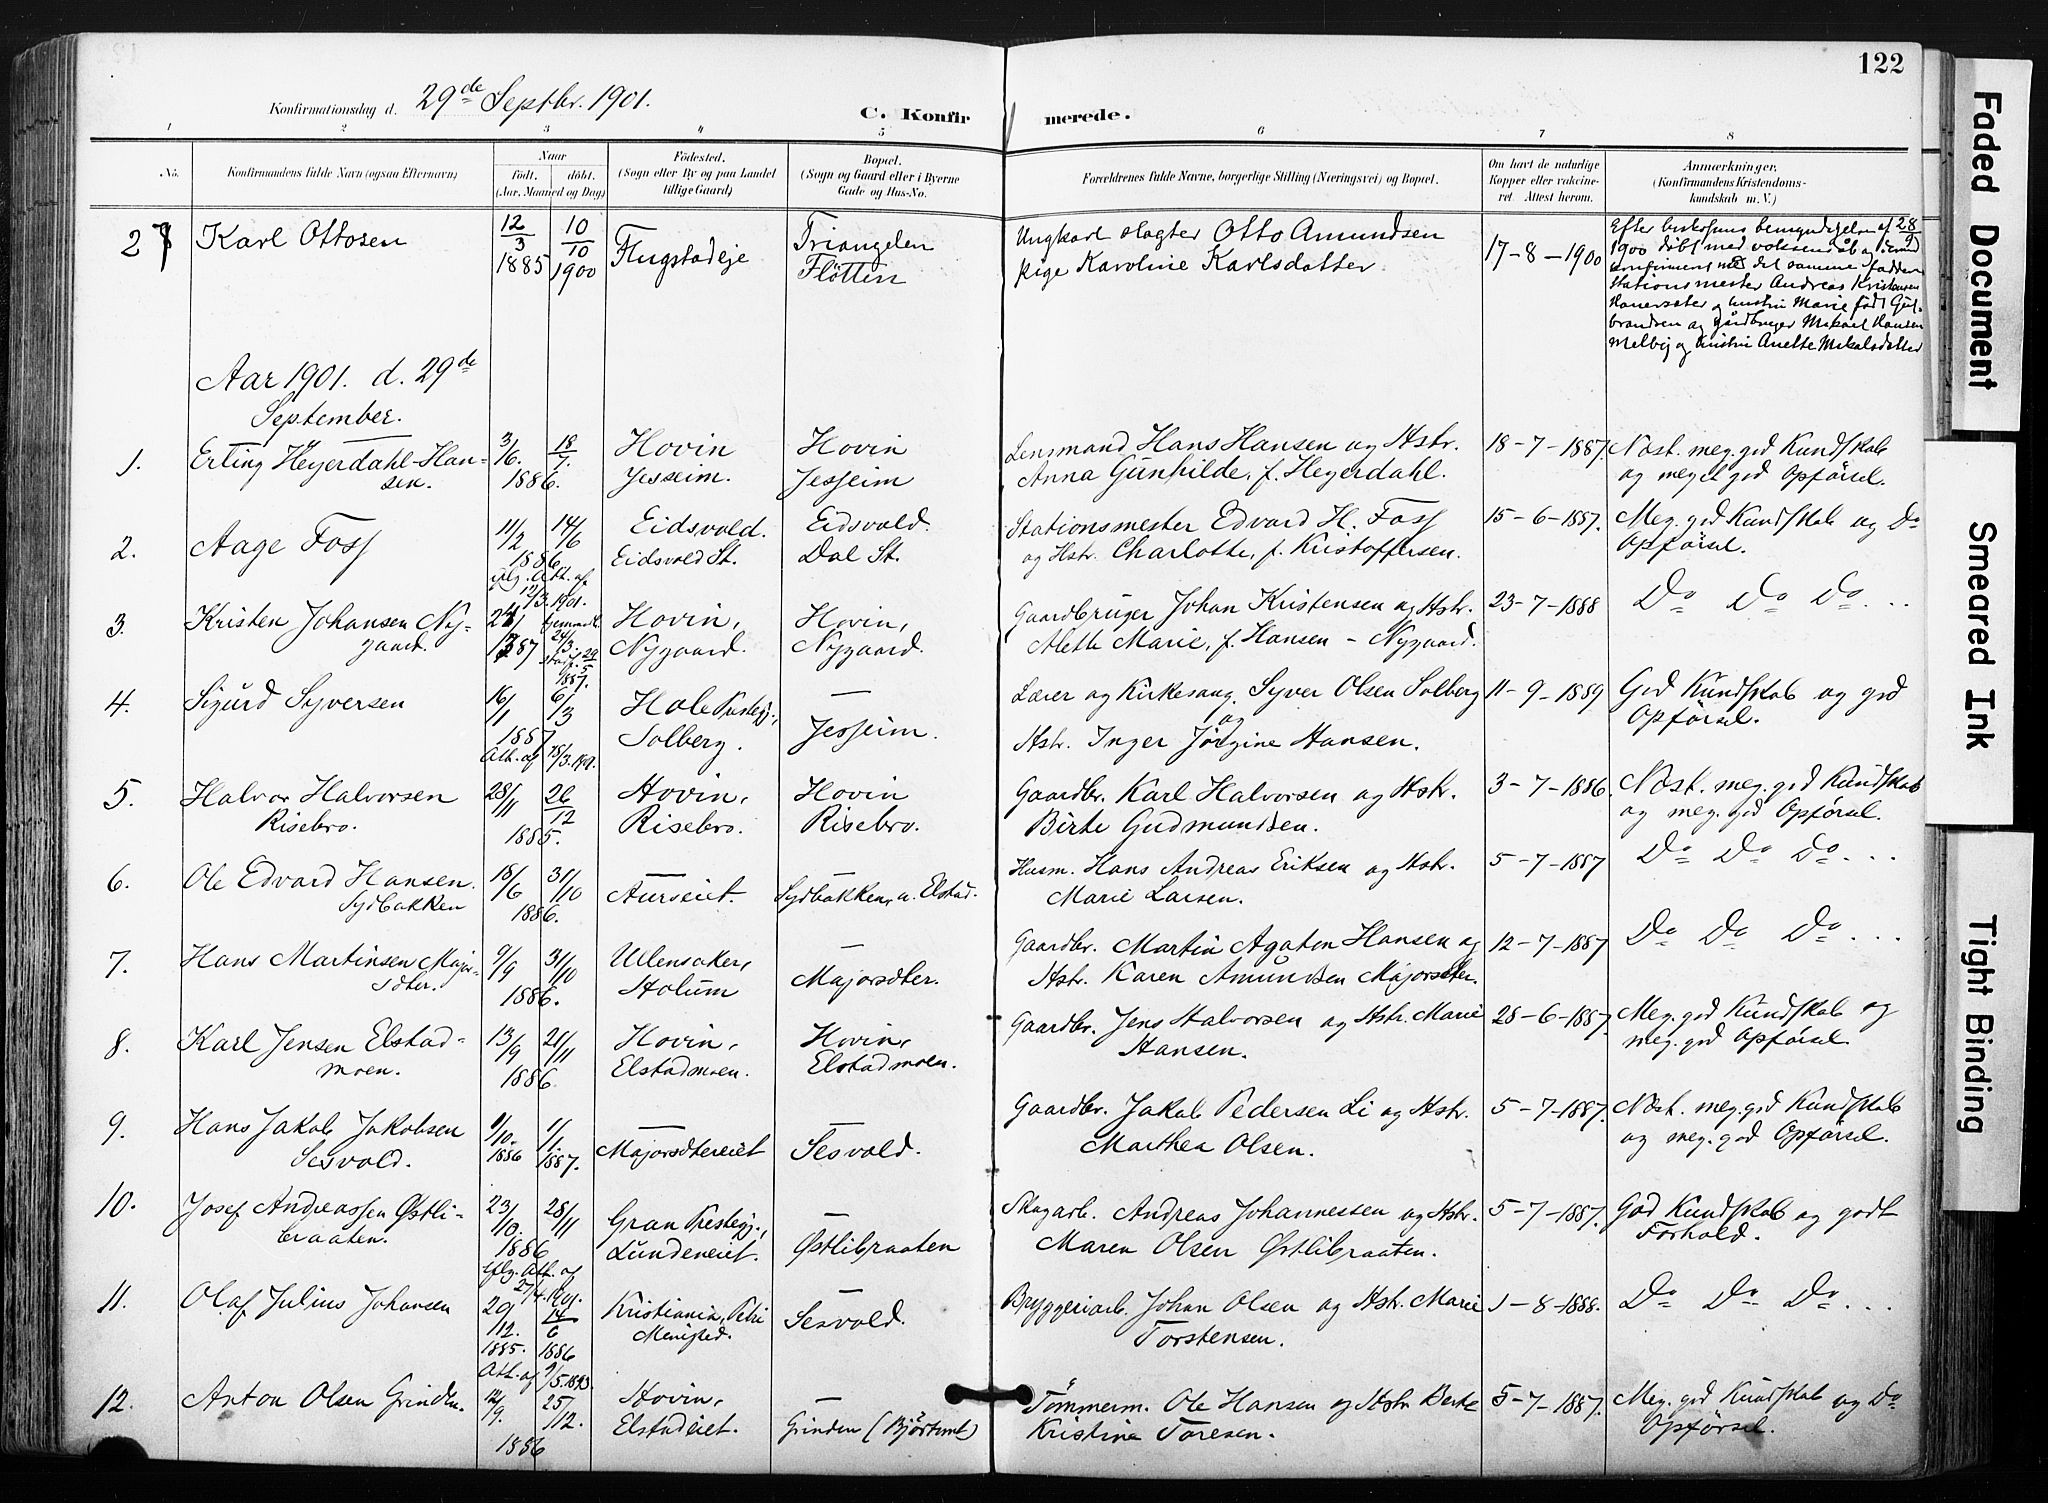 122
Konfirmationsdag d. 29de Septbr. 1901.
C. Konfirmerede.
1 2 3 4 5 6 7 8
No.
Konfirmandens fulde Navn (ogsaa Efternavn)
Naar
födt. döbt.
(Aar, Maaned og Dag)
Födested.
(Sogn eller By og paa Landet
tillige Gaard)
Bopæl.
(Sogn og Gaard eller i Byerne
Gade og Hus-No.
Forældrenes fulde Navne, borgerlige Stilling (Næringsvei) og Bopæl.
Om havt de naturlige
Kopper eller vakcine-
ret. Attest herom.
Anmærkninger.
(Konfirmandens Kristendoms-
kundskab m. V.)
27 Karl Ottosen
12/3 1885
10/10 1900
Flugstadeje
Triangelen
Flötten
Ungkarl slagter Otto Amundsen
pige Karoline Karlsdatter
17-8-1900
Efter biskopens bemyndigelse af 28/9
1900 döbt med voksendåb og
konfirmeret med det samme faddere
Stationsmester Andreas Kristensen
og hustru Marie född Gul-
brandsen og gårdbruger Mikael Hansen
Melby og hustru Anette Mikalsdatter
Aar 1901. d. 29de
September.
1. Erling Heyerdahl-Han-
sen.
3/6. 18/7.
1886.
Hovin
Jesseim.
Hovin
Jesseim
Lensmand Hans Hansen og Hstr.
Anna Gunhilde, f. Heyerdahl.
18-7-1887.
Næst. meg. god Kundskab
og meget god Opförsel.
2. Aage Foss
11/2 14/6
1886
iflg. Att. af
12/3. 1901.
Eidsvold.
Eidsvold St.
Eidsvold.
Dal St.
Stationsmester Edvard H. Foss
og Hstr. Charlotte, f. Kristoffersen.
15-6-1887.
Meg. god Kundskab og Do
Opförsel.
3. Kristen Johansen Ny-
gaard.
24/1 1887
hjemmed.
24/3
stadf. 29/5
1887.
Hovin,
Nygaard.
Hovin,
Nygaard.
Gaardbruger Johan Kristensen og Hstr.
Alette Marie, f. Hansen - Nygaard.
23-7-1888
Do Do Do. . . .
4. Sigurd Syversen
16/1 6/3
1887
Att. af 15/3. 1901.
Hole Prestegj.,
Solberg.
—
Jesseim.
Lærer og Kirkesang. Syver Olsen Solberg
og
Hstr. Inger Jörgine Hansen.
11-9-1889
God Kundskab og god
Opförsel.
5. Halvor Halvorsen
Risebro.
28/11 26/12
1885.
Hovin,
Risebro.
Hovin
Risebro.
Gaardbr. Karl Halvorsen og Hstr.
Birte Gudmundsen.
3-7-1886.
Næst. meg. god Kundskab
og meg. god Opförsel.
6. Ole Edvard Hansen.
Sydbakken
18/6 31/10
1886.
—
Aurseiet.
—
Sydbakken, u. Elstad.
Husm. Hans Andreas Eriksen og Hstr.
Marie Larsen.
5-7-1887
Do Do Do. . . .
7. Hans Martinsen Major-
sæter.
9/9 31/10
1886.
Ullensaker,
Holum
—
Majorsæter.
Gaardbr. Martin Agaton Hansen og
Hstr. Karen Amundsen Majorsæter.
12-7-1887
Do Do Do. . . .
8. Karl Jensen Elstad-
moen.
13/9 21/11
1886.
Hovin,
Elstadmoen.
Hovin,
Elstadmoen.
Gaardbr. Jens Halvorsen og Hstr. Marie
Hansen.
28-6-1887.
Meg. god Kundskab og
meg. god Opförsel.
9. Hans Jakob Jakobsen
Sesvold.
9/10. 1886
1/1 1887.
—
Majorsætereiet
—
Sesvold.
Gaardbr. Jakob Pedersen Li og Hstr.
Marthea Olsen.
5-7-1887.
Næst. meg. god Kundskab
og meg. god Opförsel.
10. Josef Andreassen Østli-
braaten.
23/10. 28/11
1886
iflg. Att. af
27/4. 1901.
Gran Prestegj.,
Lundeneiet.
—
Østlibraaten
Skogarb. Andreas Johannessen og Hstr.
Maren Olsen Østlibraaten.
5-7-1887.
God Kundskab og godt
Forhold.
11. Olaf Julius Johansen
29/12. 1885.
14/6 1886
Att. af 9/5. 1893.
Kristiania, Petri
Menighed.
—
Sesvold.
Bryggeriarb. Johan Olsen og Hstr. Marie
Torstensen.
1-8-1888.
Do Do Do . . .
12. Anton Olsen Grinden.
12/9. 25/12.
1886
Hovin,
Elstadeiet.
—
Grinden (Björtomt)
Tömmerm. Ole Hansen og Hstr Berte
Kristine Toresen.
5-7-1887.
Meg. god Kundskab og Do
Opförsel.
Faded Document
Smeared Ink
Tight Binding